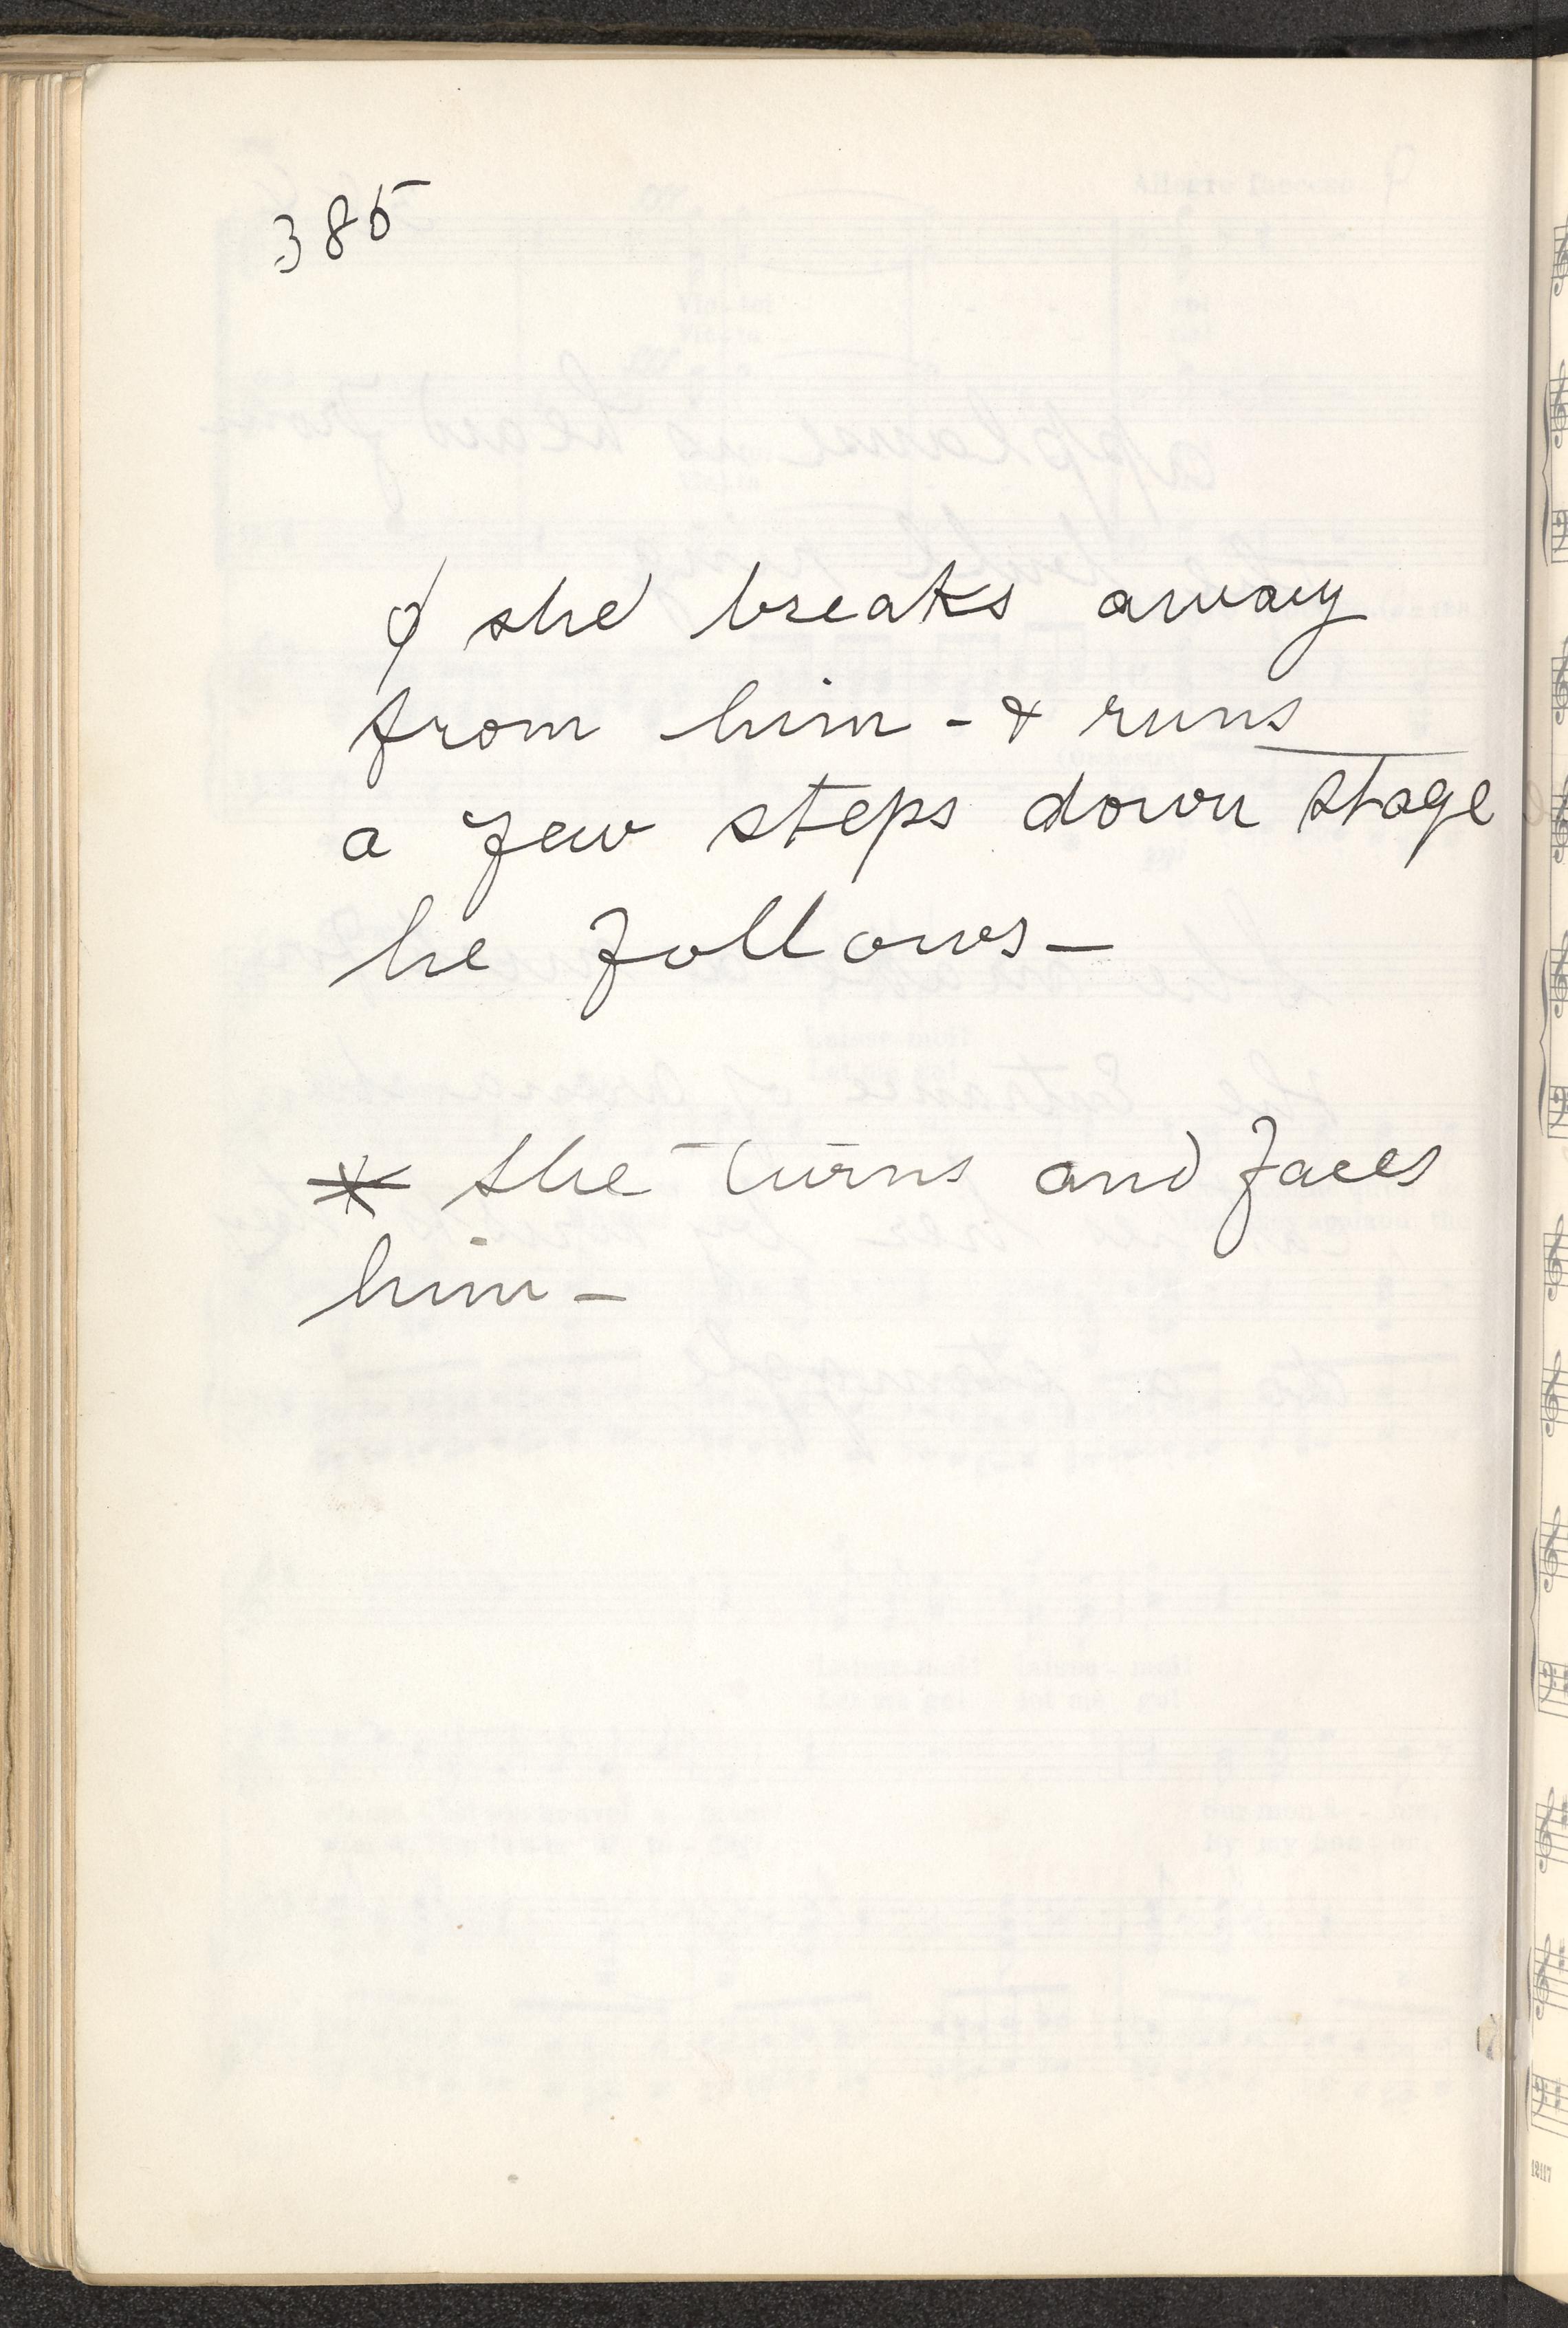 385
ϕ she breaks away
from him - & runs
a few steps down stage
he follows —
* she turns and faces
him —
12117